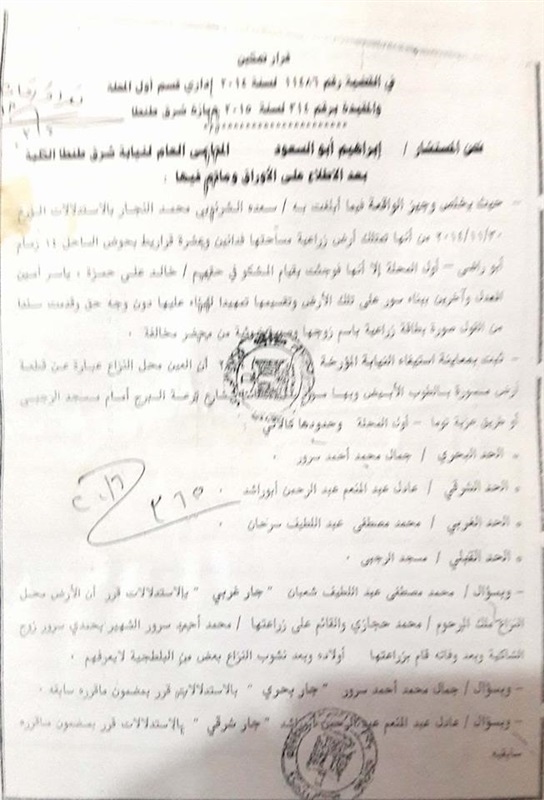 قرار تمكين
في القضية رقم ١١٤٨٦ لسنة ٢٠١٤ إداري قسم أول المحلة
والمقيدة برقم ٢١٤ لسنة ٢٠١٥ حيازة شرق طنطا
نحن المستشار / إبراهيم أبو السعود المحامى العام لنيابة شرق طنطا الكلية
بعد الاطلاع على الأوراق وماتم فيها :
– حيث يخلص وجيز الواقعة فيما أبلغت به / سعده الشربيني محمد النجار بالاستدلالات المؤرخ
من أنها تمتلك أرض زراعية مساحتها فدانين وعشرة قراريط بحوض الساحل ١٤ زمام
أبو راضى – أول المحلة إلا أنها فوجئت بقيام المشكو في حقهم / خالد على حمزة ، ياسر أمين
العدل وآخرين ببناء سور على تلك الأرض وتقسيمها تمهيدا للبناء عليها دون وجه حق وقدمت سندا
من القول صورة بطاقة زراعية باسم زوجها وصورة ضوئية من محضر مخالفة .
– ثبت بمعاينة استيفاء النيابة المؤرخة أن العين محل النزاع عبارة عن قطعة
أرض مسورة بالطوب الأبيض وبها سور بشارع ترعة البرج أمام مسجد الرجبى
أو طريق عزبة توما – أول المحلة وحدودها كالآتي :
* الحد البحري / جمال محمد أحمد سرور .
* الحد الشرقي / عادل عبد المنعم عبد الرحمن أبوراشد .
* الحد الغربي / محمد مصطفى عبد اللطيف سرحان .
* الحد القبلي / مسجد الرجبى .
٣٦٥
– وبسؤال / محمد مصطفى عبد اللطيف شعبان " جار غربي " بالاستدلالات قرر أن الأرض محل
النزاع ملك المرحوم / محمد حجازي والقائم على زراعتها / محمد أحمد سرور الشهير بحمدي سرور زوج
الشاكية وبعد وفاته قام بزراعتها أولاده وبعد نشوب النزاع بعض من البلطجية لايعرفهم .
– وبسؤال / جمال محمد أحمد سرور " جار بحري " بالاستدلالات قرر بمضمون ماقرره سابقه .
– وبسؤال / عادل عبد المنعم عبد الرحمن أبوراشد " جار شرقي " بالاستدلالات قرر بمضمون ماقرره
سابقيه